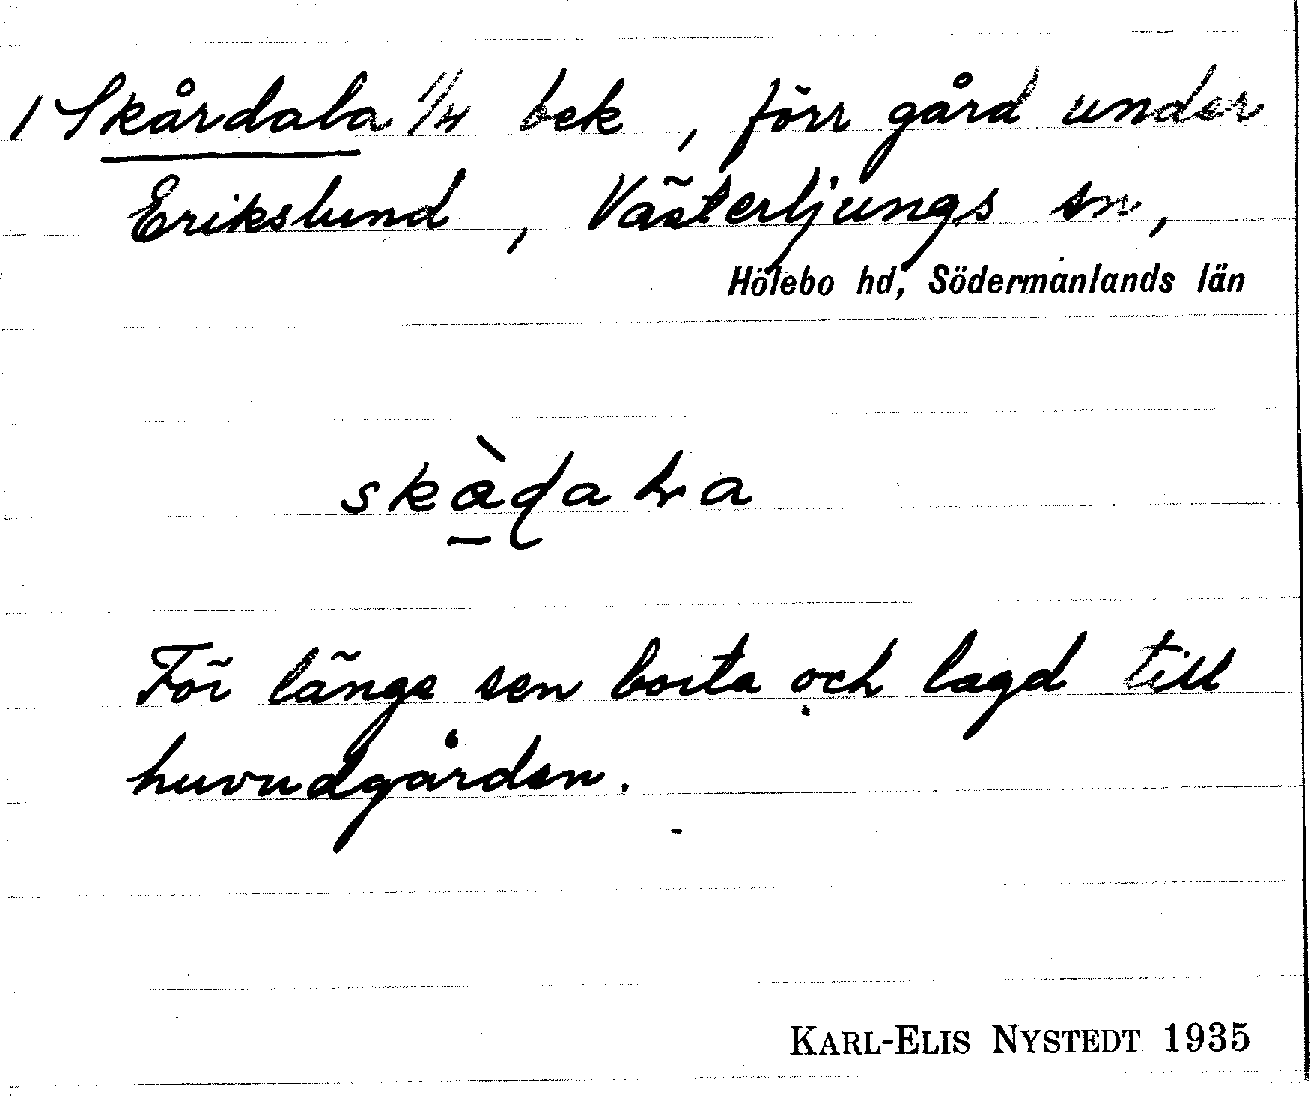 1 Skårdala 1/4 bek, förr gård under
Erikslund, Västerljungs sn,
Hölebo hd, Södermanlands län
För länge sen borta och lagd till
huvudgården.
KARL-ELIS NYSTEDT 1935